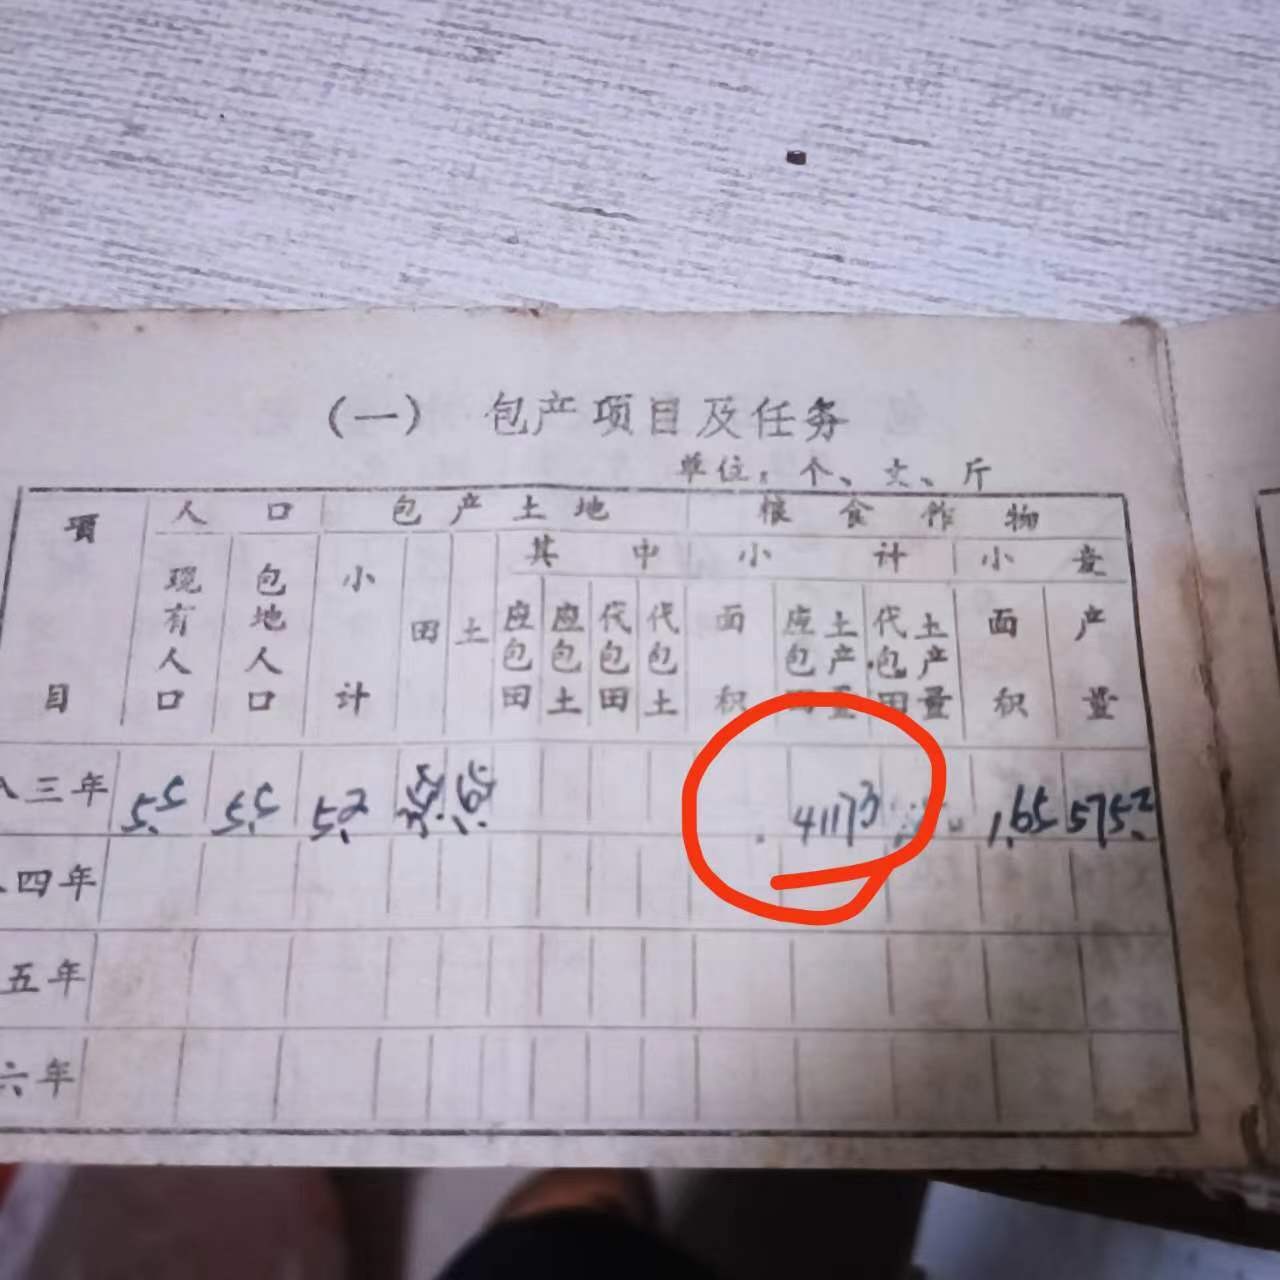 (一) 包产项目及任务
单位：个、丈、斤
項目 人口 包产土地 粮食作物
现有人口 包地人口 小计 田 土 其中 小计 小麦
应包田 应包土 代包田 代包土 面积 应包田土产量 代包田土产量 面积 产量
八三年 5.5 5.5 5.2 41173 1.65 575.2
八四年
五年
六年